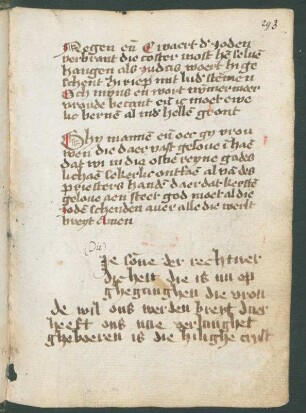 293
Regen en̄ C waert d' Joden
verbrant die coster most hē seluē
hangen als judas waert hi ge
schent hi riep mit lud' stēmen
Och mijns en wort nymermeer
vroude becant en ic moet ewe
lic bernē al ind' hellē gront
Ghy mannē en̄ oec gy vrou
wen die daer vast geloue ī haē
dat wi in die ostie reyne gades
lichaē sekerlic ontfaē al vā des
priesters handē daer dat kerstē
geloue aen steet god moet al die
jodē schenden auer alle die werlt
breyt Amen
Die
sōne der rechtuer
dicheit die is nu op
ghegangen die vrou
de wil ons werden breyt daer
heeft ons nae verlanghet
gheboeren is die hilighe crist